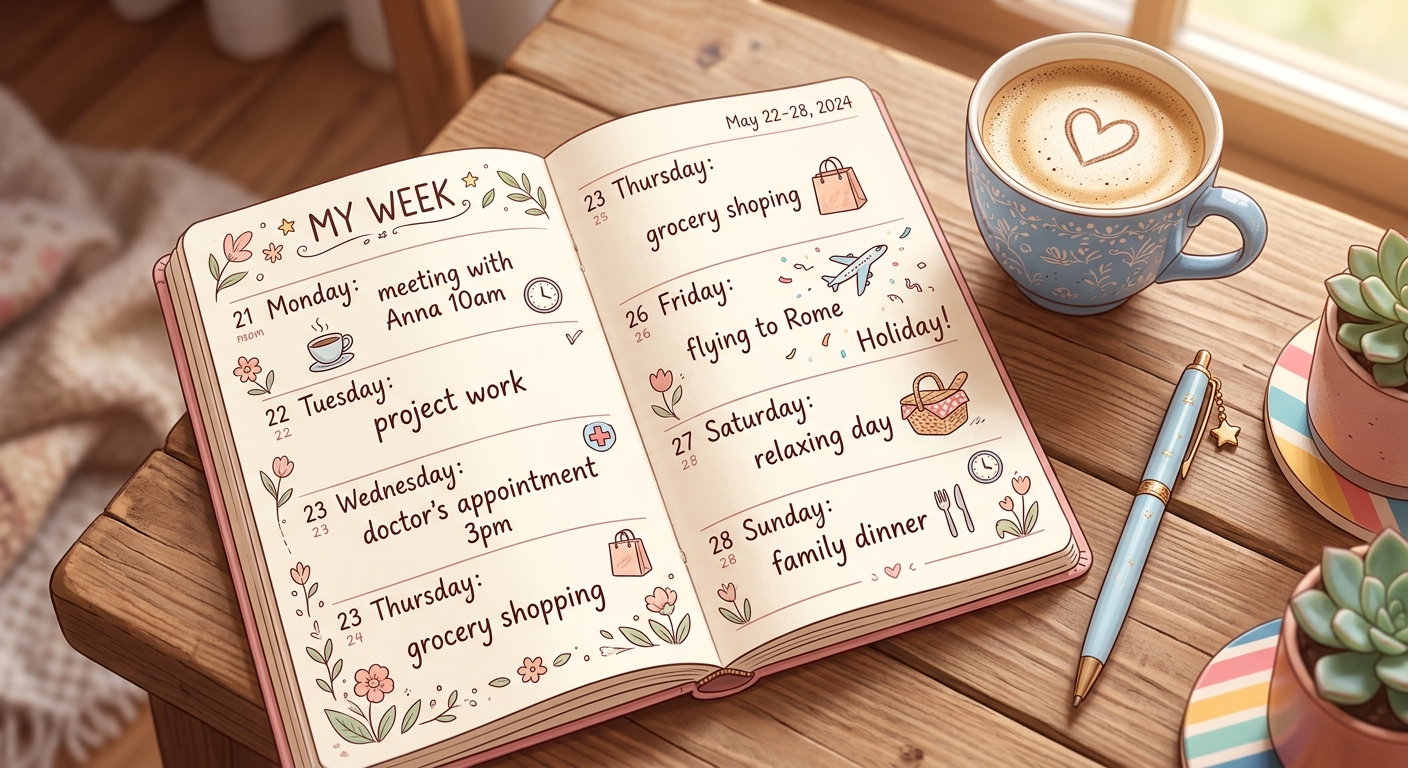 MY WEEK
21 Monday: meeting with
Anna 10am
22 Tuesday:
22
project work
23 Wednesday:
23
doctor's appointment
3pm
23 Thursday:
24
grocery shopping
May 22-28, 2024
23 Thursday:
23
grocery shoping
26 Friday:
26
flying to Rome
Holiday!
27 Saturday:
28
relaxing day
28 Sunday:
28
family dinner